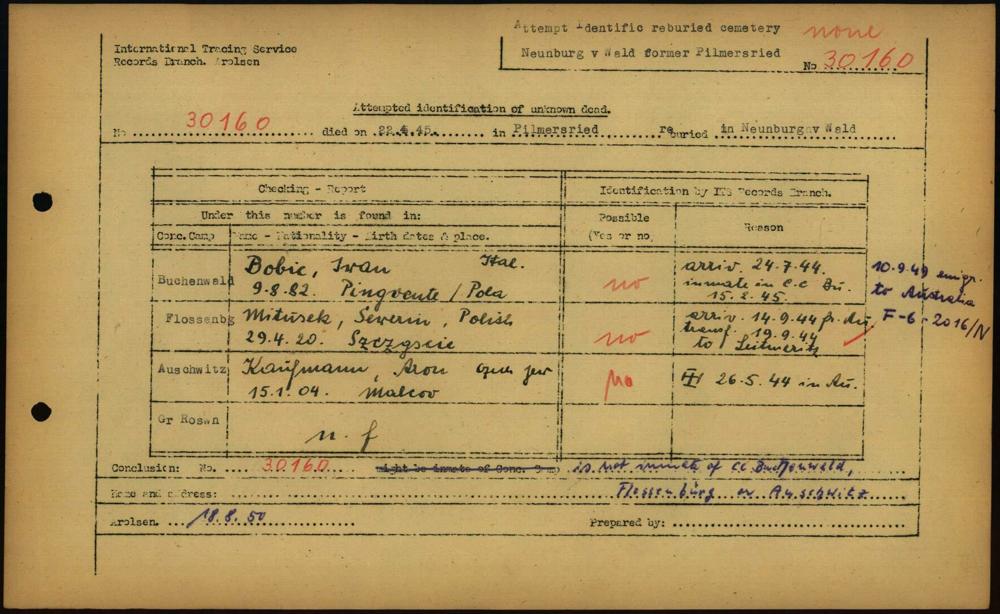 Attempt Identific reburied cemetery none
Neunburg v Wald former Pilmersried
No 30160
International Tracing Service
Records Branch. Arolsen
Attempted identification of unknown dead.
No 30160 died on 22.4.45. in Pilmersried reburied in Neunburg v Wald
Checking - Report
Identification by ITS Records Branch.
Under this number is found in:
Possible
(Yes or no)
Reason
Conc.Camp Name - Nationality - Birth dates & place.
Buchenwald
Bobic, Ivan Ital.
9.8.82. Pinguente / Pola
no
arriv. 24.7.44.
inmate in C.C Bu.
15.2.45.
10.9.49 emigr.
to Australia
F-6-2016/N
Flossenbg
Mitusek, Sewerin, Polish
29.4.20.
no
arriv. 14.9.44 fr. Au,
transf. 19.9.44
to Leitmeritz
Auschwitz
Kaufmann, Aron jew
15.1.04. Malcov
no
26.5.44 in Au.
Gr Rosen
n.f
Conclusion: No. 30160 might be inmate of Conc. Camp is not inmate of CC Buchenwald,
Name and address: Flossenbürg or Auschwitz
Arolsen. 18.8.50 Prepared by: